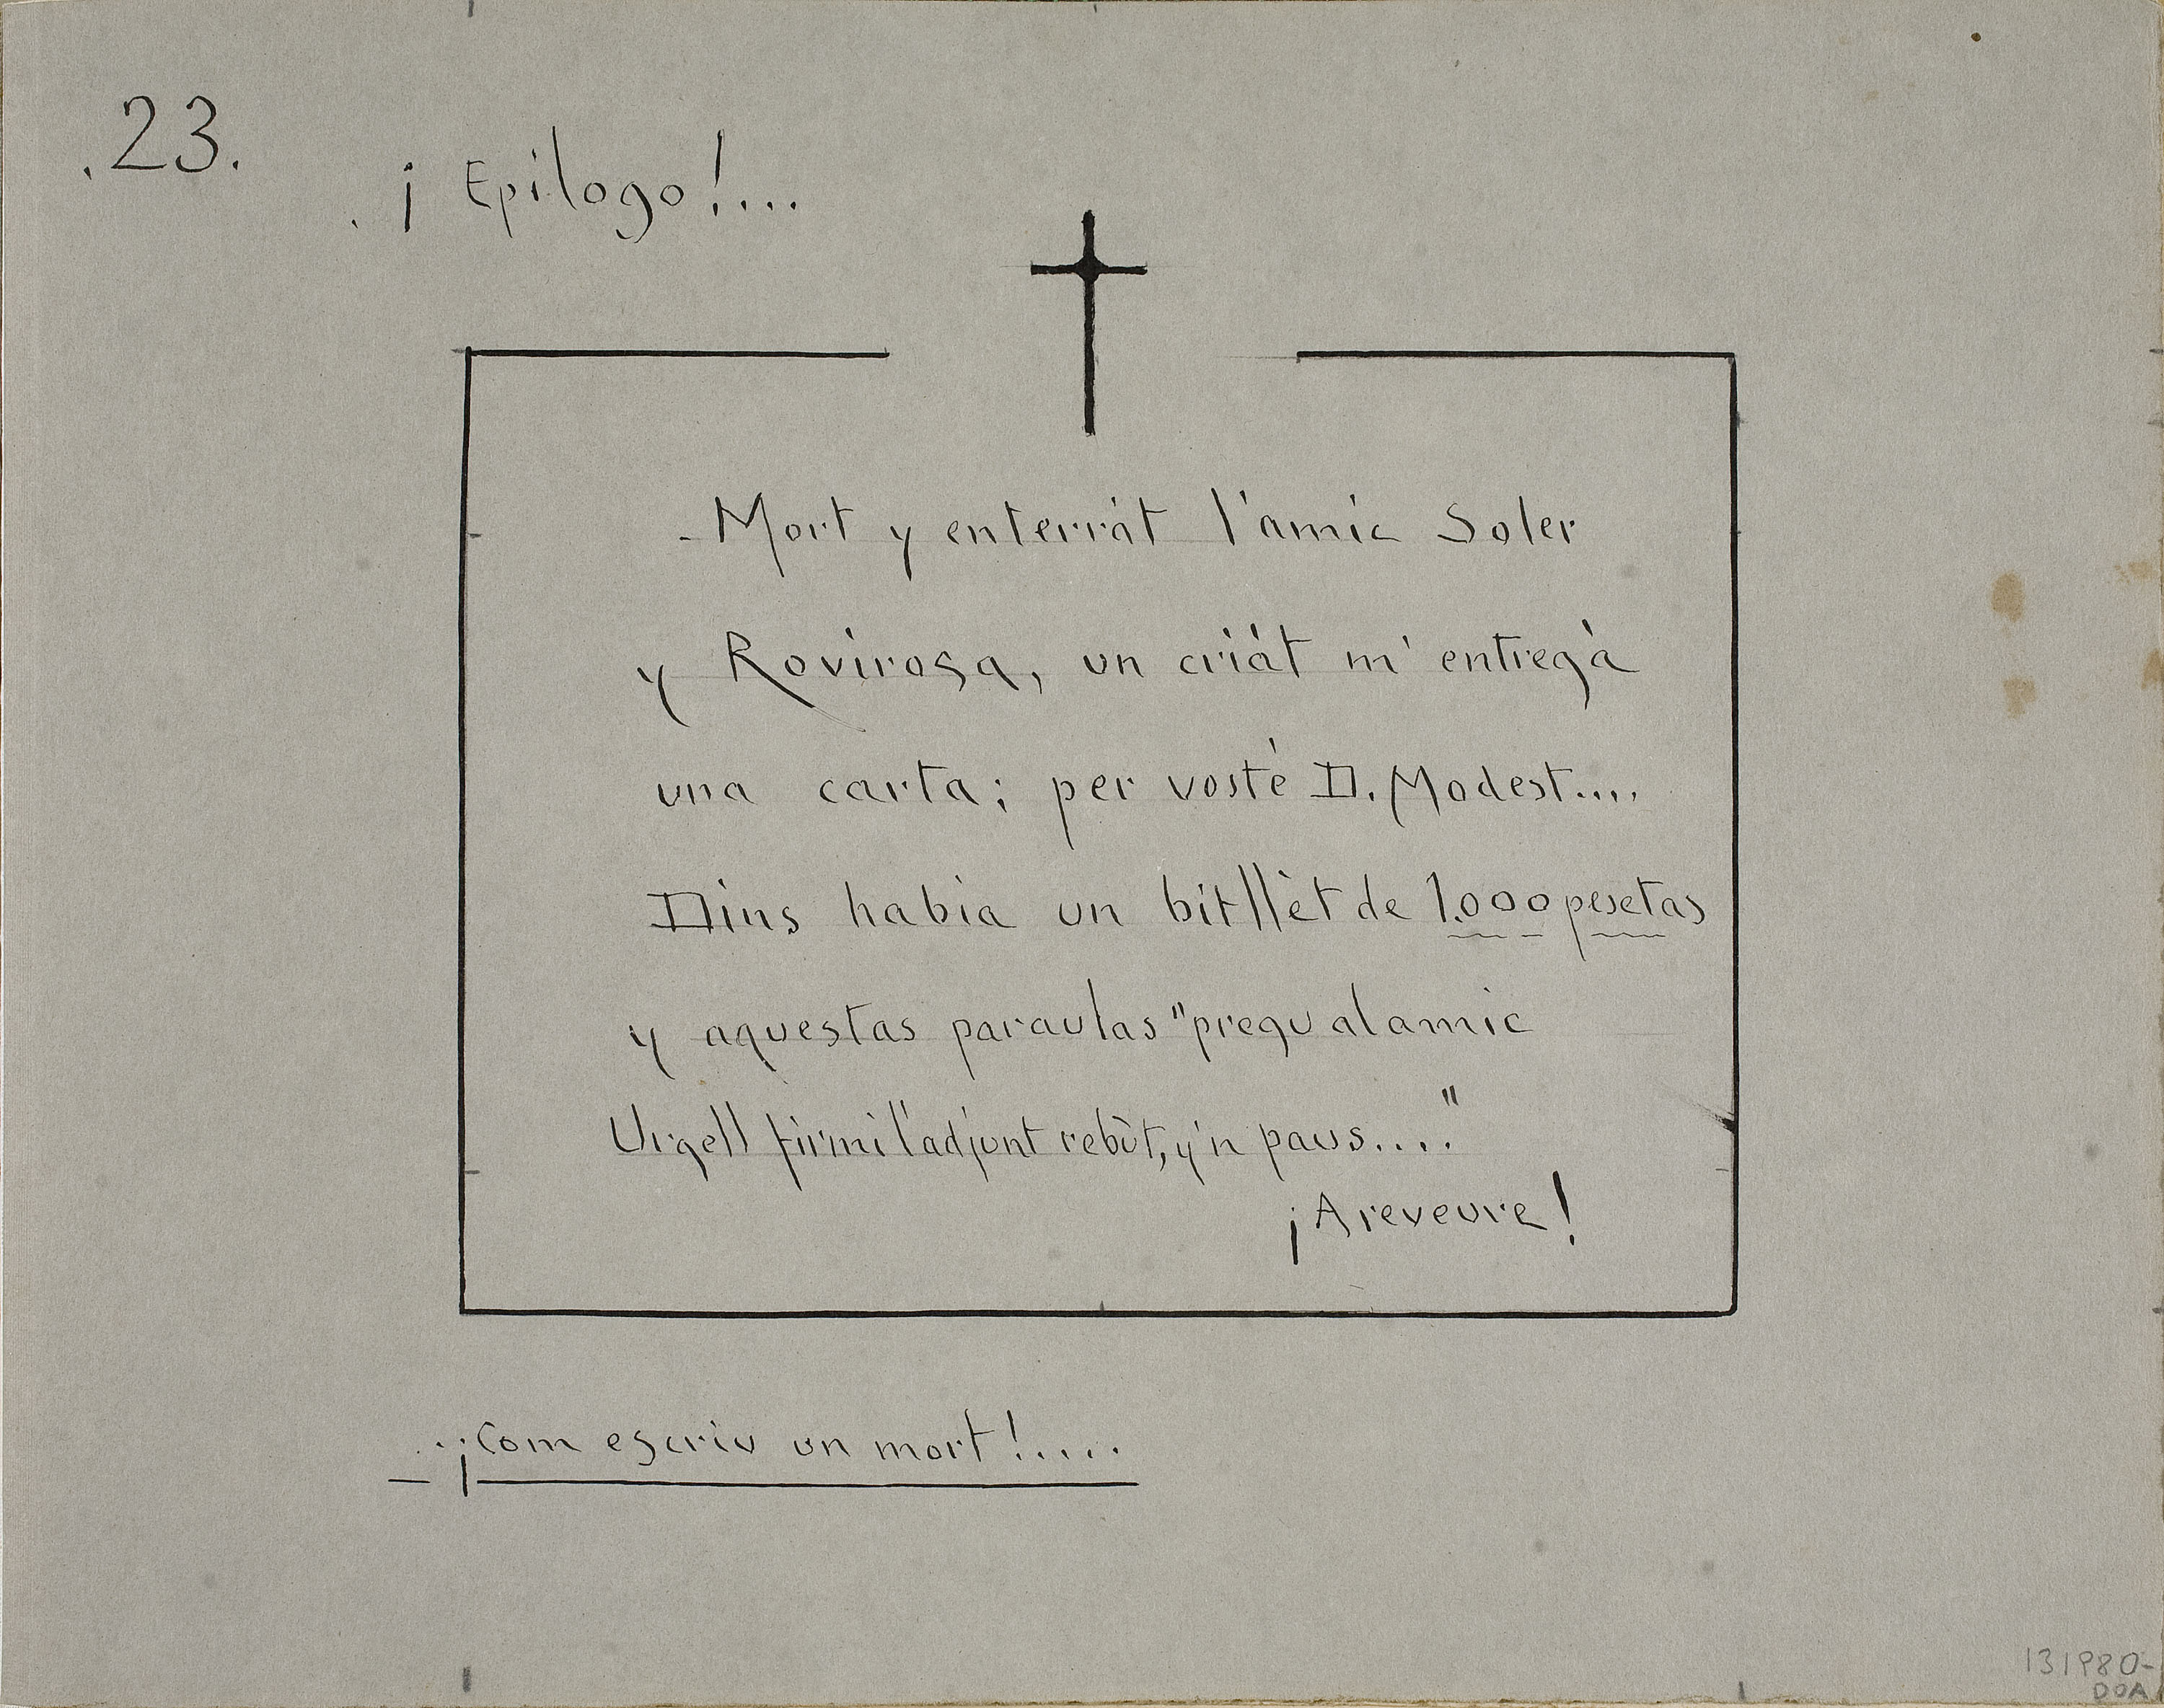 .23.
. ¡Epilogo!....
- Mort y enterrát l'amic Soler
y Rovirosa, un criát m'entregà
una carta; per vosté D. Modest....
Dins habia un bitllèt de 1.000 pesetas
y aquestas paraulas "pregu al amic
Urgell firmi l'adjunt rebùt, y'n paus...."
¡A reveure!
¡Com escriu un mort!....
131980-
DOA